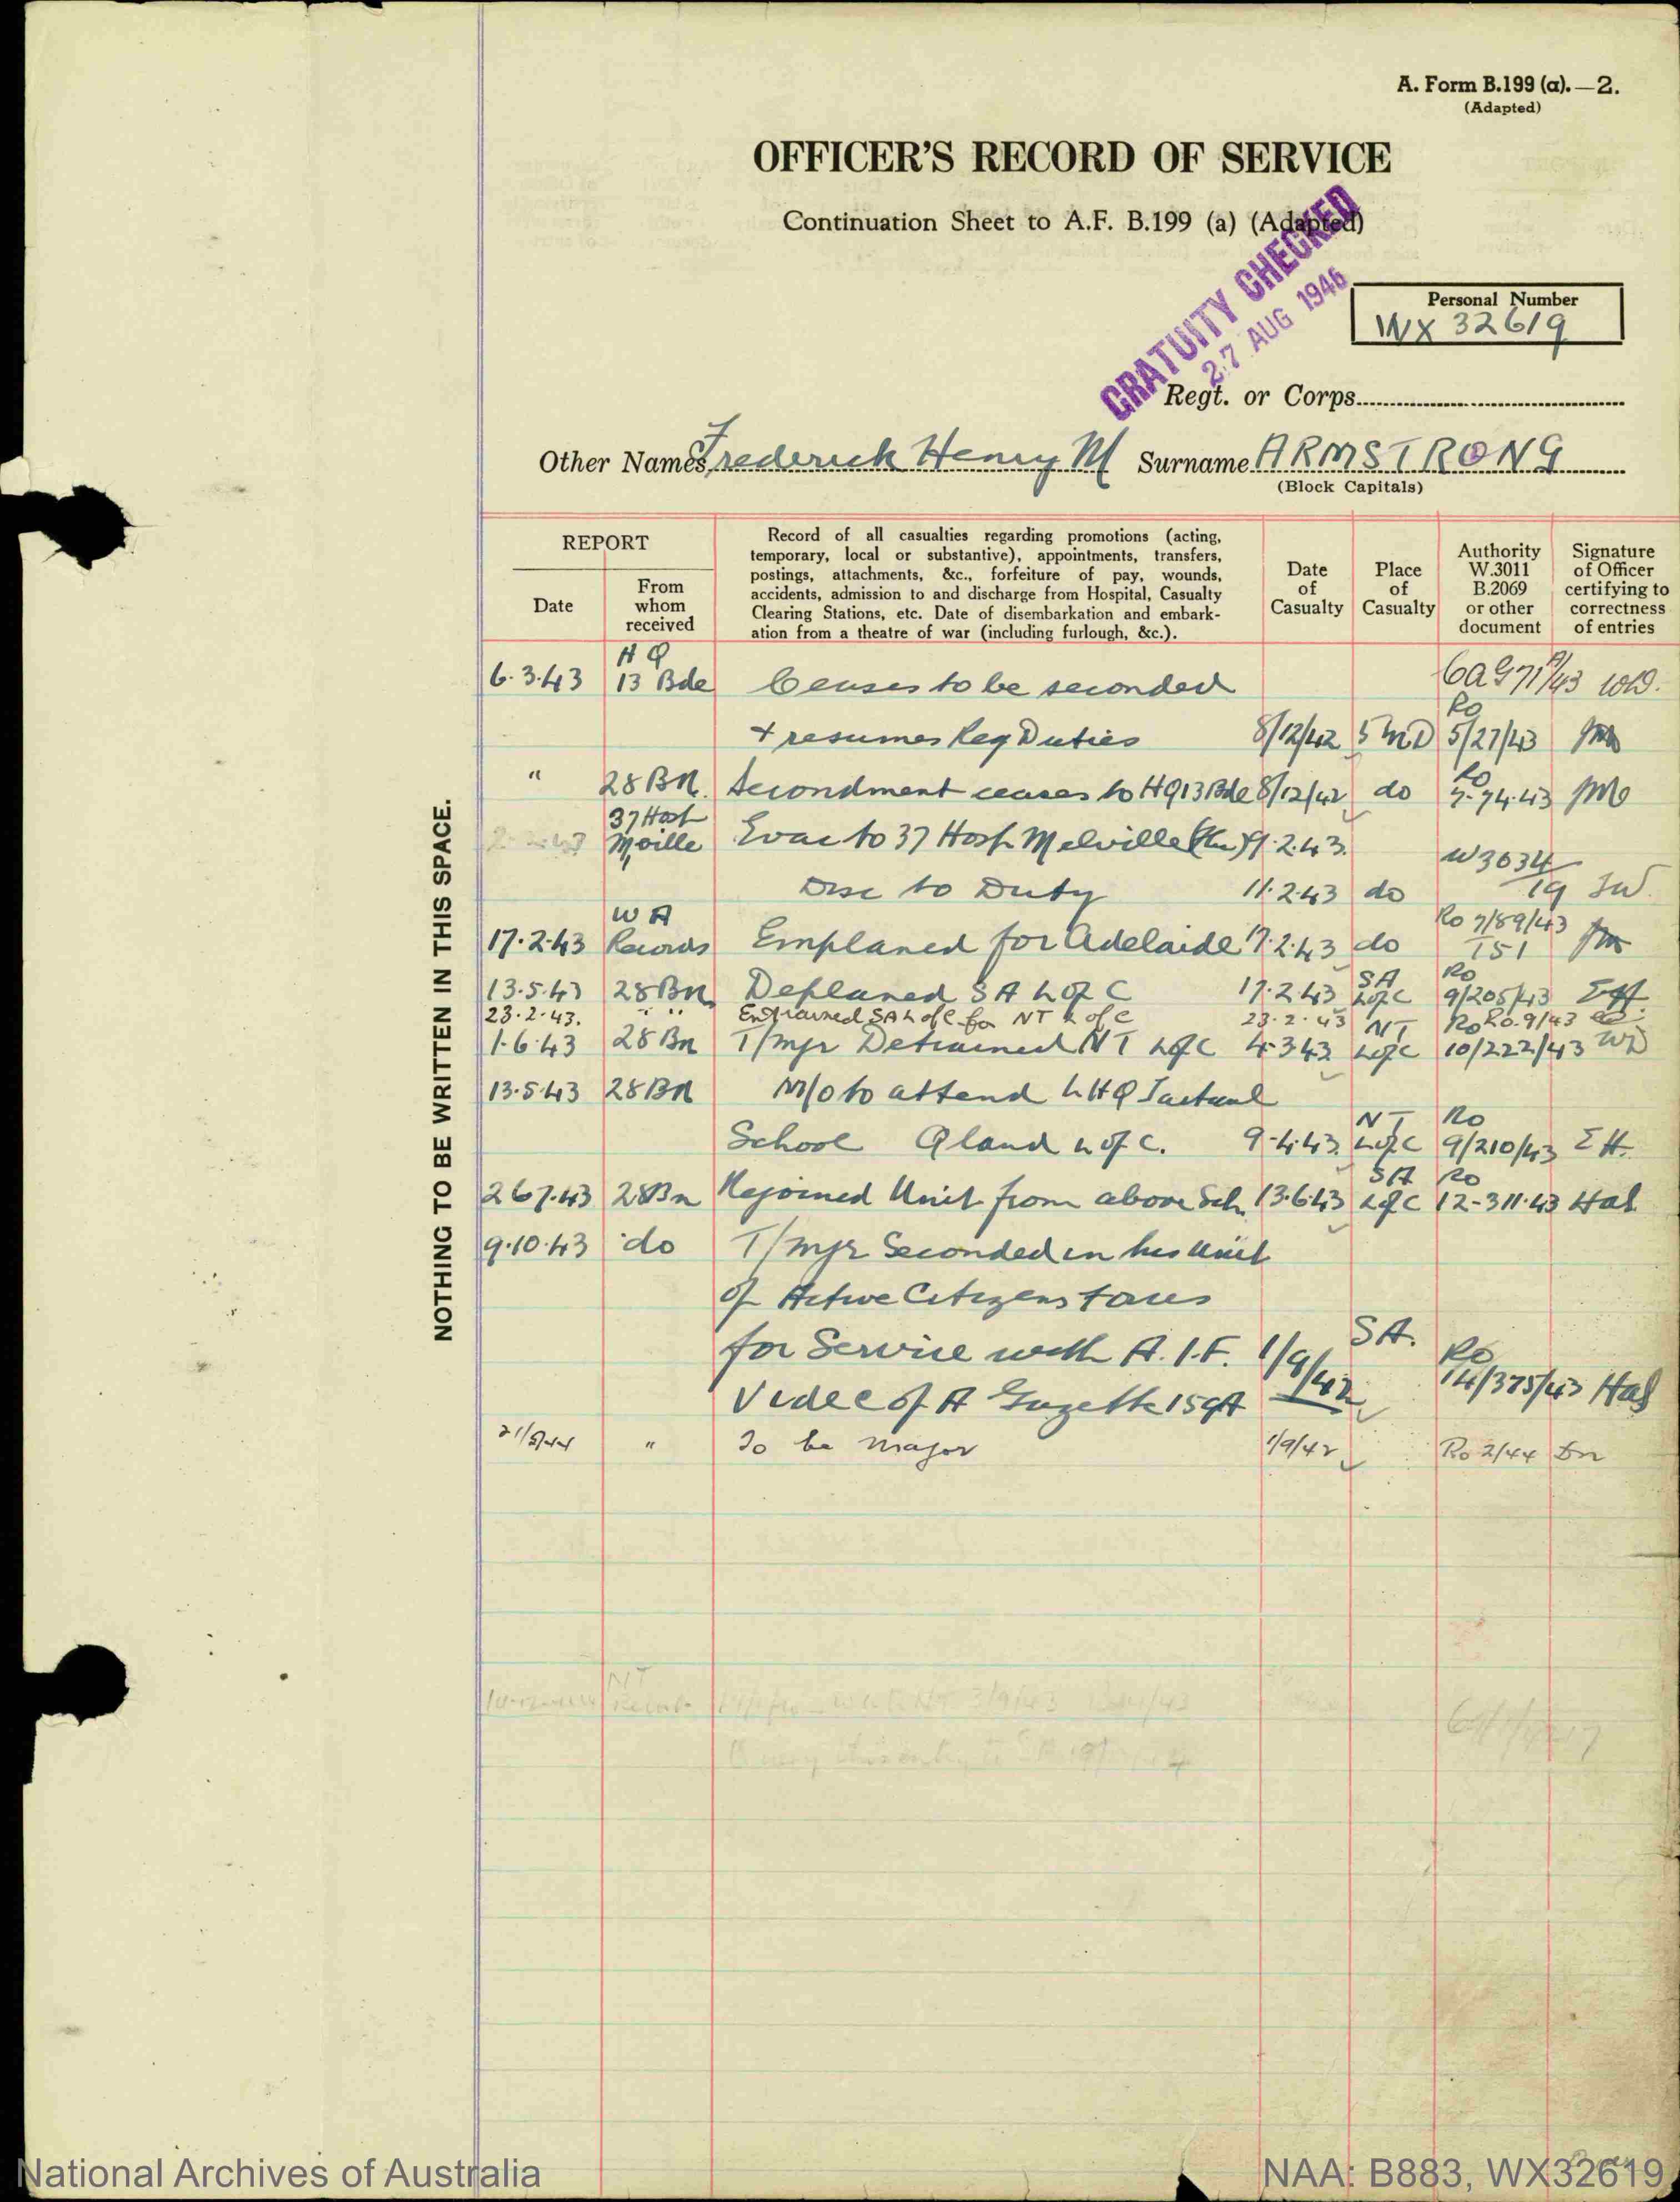 A. Form B.199 (a).—2.
(Adapted)
OFFICER'S RECORD OF SERVICE
Continuation Sheet to A.F. B.199 (a) (Adapted)
GRATUITY CHECKED
27 AUG 1946
Personal Number
WX 32619
Regt. or Corps
Other Names Frederick Henry M Surname ARMSTRONG
(Block Capitals)
NOTHING TO BE WRITTEN IN THIS SPACE.
REPORT
Date
From whom received
Record of all casualties regarding promotions (acting,
temporary, local or substantive), appointments, transfers,
postings, attachments, &c., forfeiture of pay, wounds,
accidents, admission to and discharge from Hospital, Casualty
Clearing Stations, etc. Date of disembarkation and embark-
ation from a theatre of war (including furlough, &c.).
Date of Casualty
Place of Casualty
Authority W.3011 B.2069 or other document
Signature of Officer certifying to correctness of entries
6.3.43 HQ 13 Bde Ceases to be seconded
+ resumes Reg Duties 8/12/42 5 MD Ro 5/27/43
" 28 BN. Secondment ceases to HQ 13 Bde 8/12/42 do Ro 7.74.43
37 Hosp M'ville Evac to 37 Hosp Melville 9.2.43 W3034
Disc to Duty 11.2.43 do 19
17.2.43 WA Records Emplaned for Adelaide 17.2.43 do Ro 7/89/43 T51
13.5.43 28 Bn Deplaned SA L of C 17.2.43 SA L of C Ro 9/205/43
23.2.43. " " Entrained SA L of C for NT L of C 23.2.43 Ro 9/43
1.6.43 28 Bn T/Mjr Detrained NT L of C 4.3.43 NT L of C Ro 10/222/43 WD
13.5.43 28 BN M/o to attend LHQ Tactical
School Qland L of C. 9.4.43 NT L of C Ro 9/210/43 EH
26.7.43 28 Bn Rejoined Unit from above Sch 13.6.43 SA L of C Ro 12-311.43 Hal
9.10.43 do T/Mjr Seconded in his Unit
of Active Citizens Forces
for Service with A.I.F. 1/9/42 SA. Ro 14/375/43 Hal
Vide C of A Gazette 159A
" To be Major 1/9/42 Ro 2/44
NT
National Archives of Australia
NAA: B883, WX32619